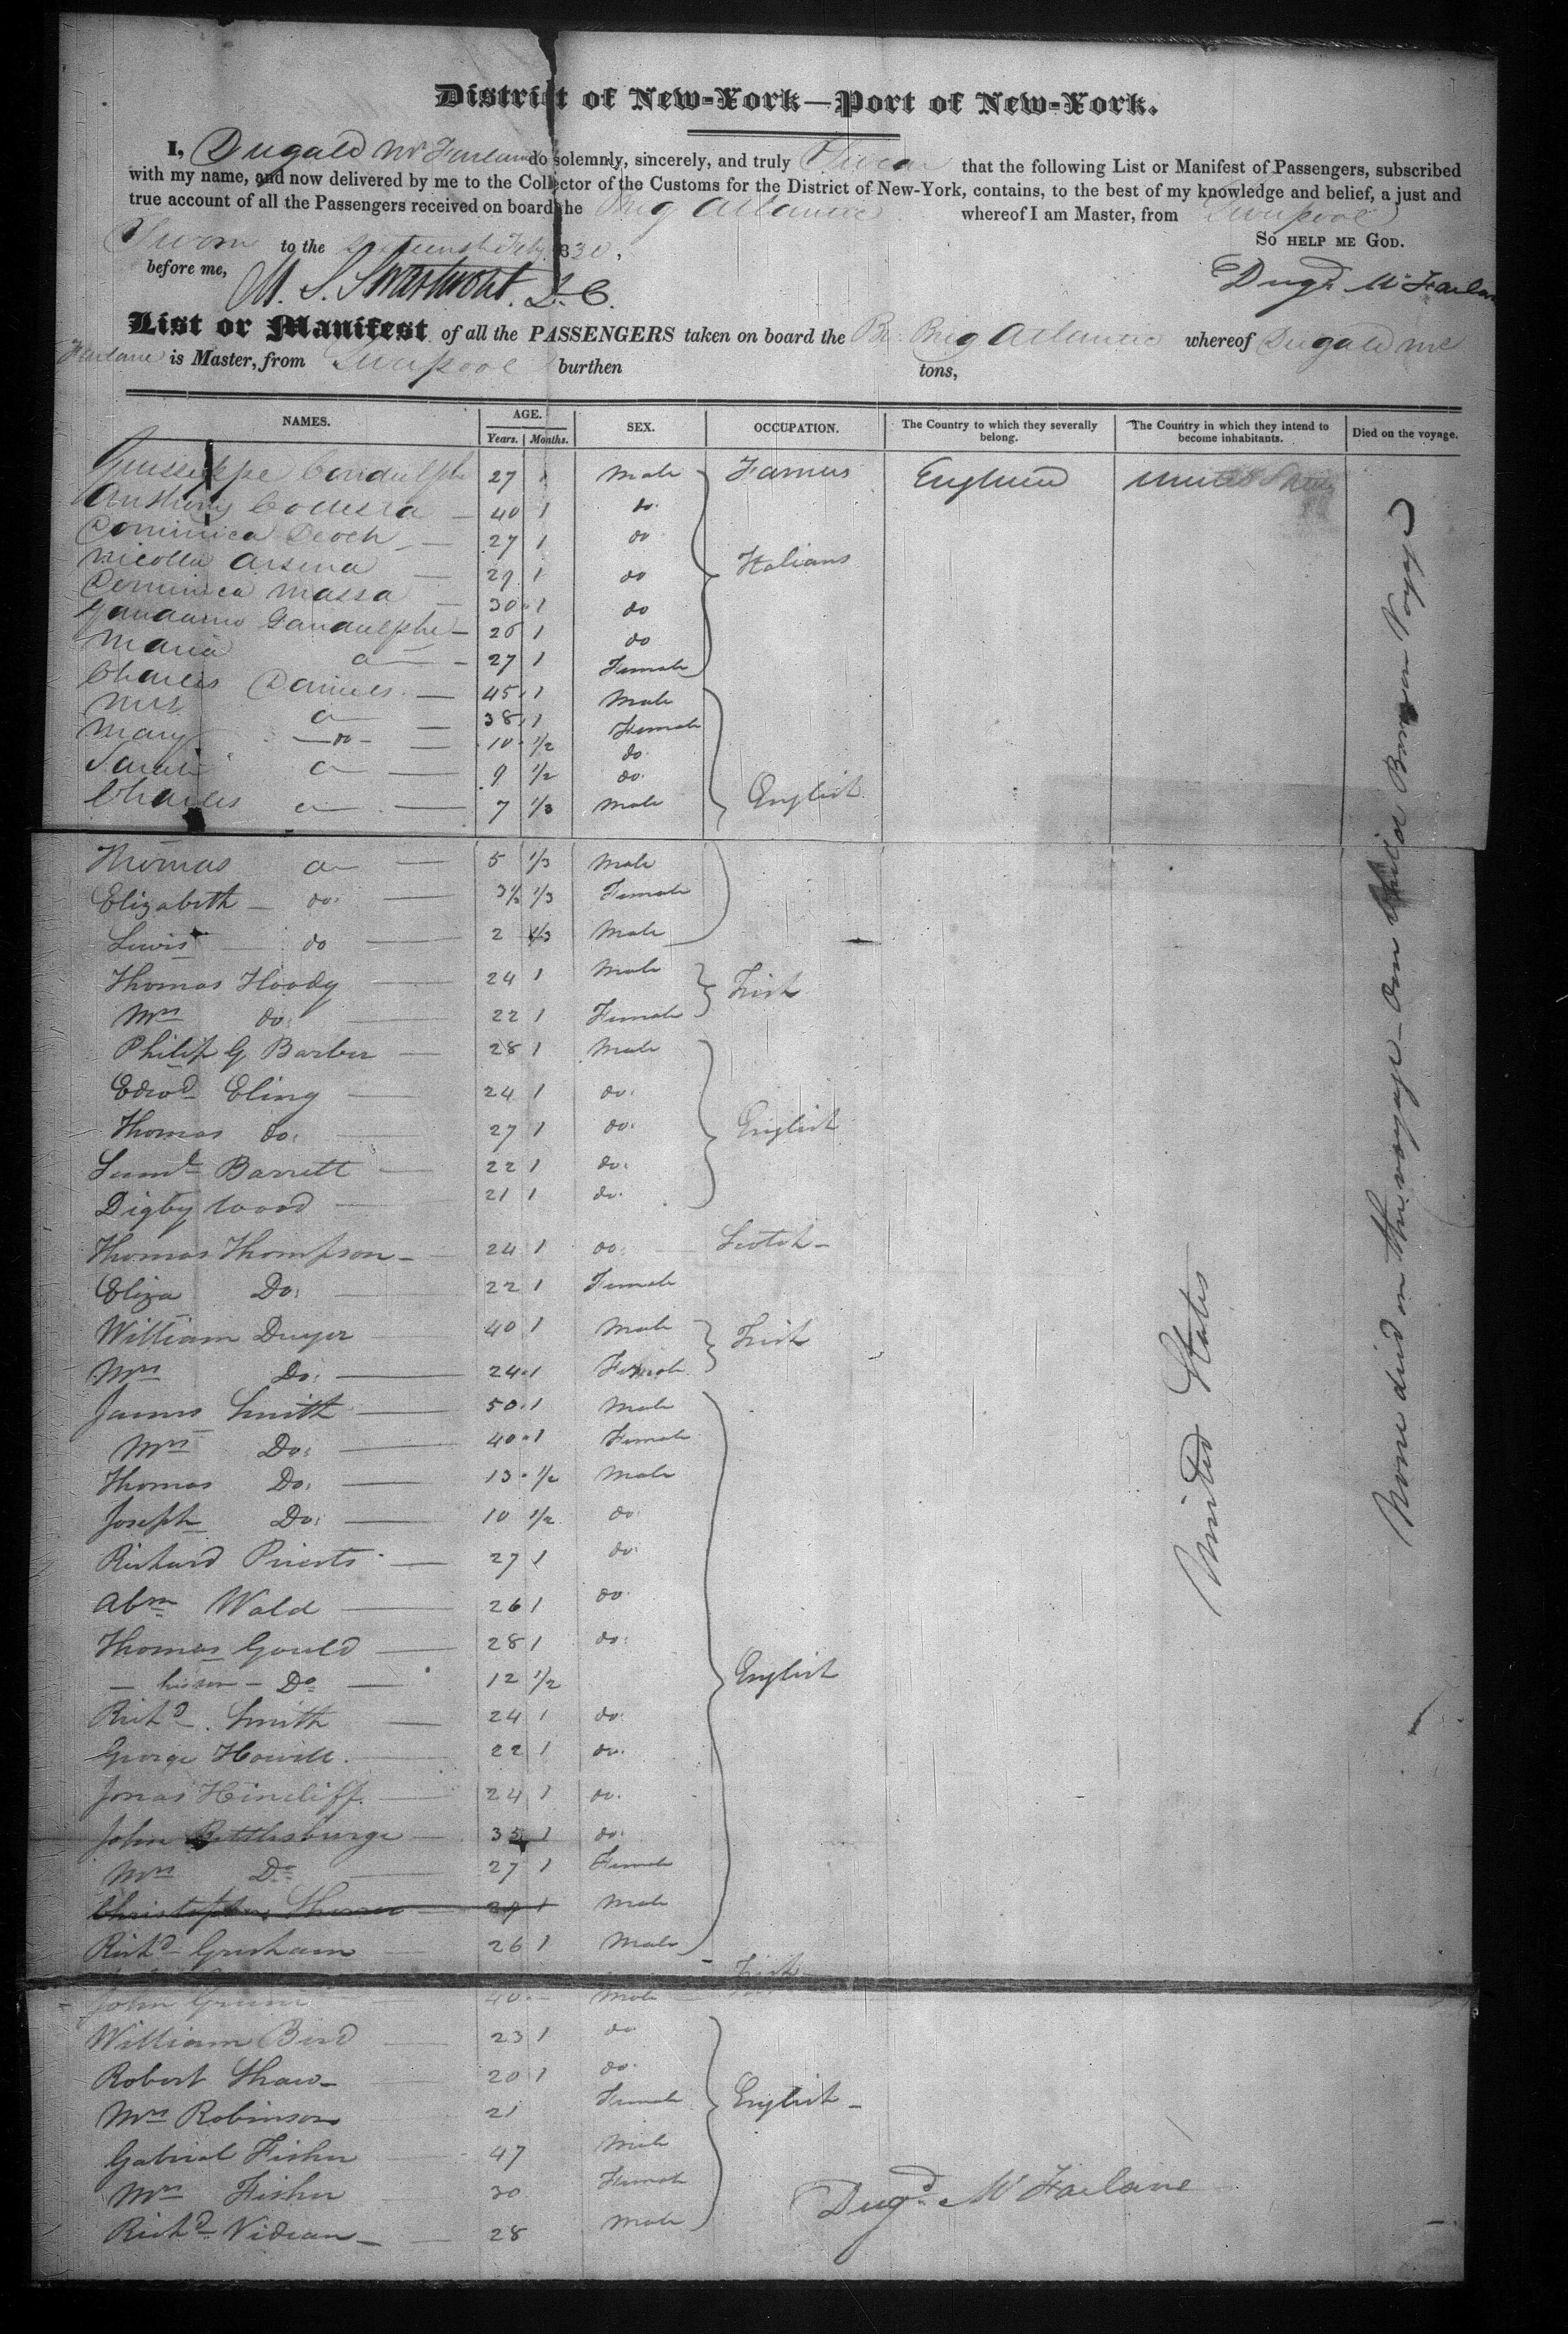 District of New-York—Port of New-York.
I, Dugald Mc Farlane do solemnly, sincerely, and truly Swear that the following List or Manifest of Passengers, subscribed
with my name, and now delivered by me to the Collector of the Customs for the District of New-York, contains, to the best of my knowledge and belief, a just and
true account of all the Passengers received on board the Brig Atlantic whereof I am Master, from Liverpool
Sworn to the Sixteenth Feby 1830,
So help me God.
before me,
M. S. Swartwout. D. C.
Dugd. McFarlane
List or Manifest of all the PASSENGERS taken on board the Br. Brig Atlantic whereof Dugald Mc
Farlane is Master, from Liverpool burthen tons,
NAMES. AGE. Years. Months. SEX. OCCUPATION. The Country to which they severally belong. The Country in which they intend to become inhabitants. Died on the voyage.
Guisseppe Gandulpho 27 1 Male Farmers England United States
Anthony 40 1 do.
Dominica 27 1 do
Nicolla Arsena 29 1 do Italians
Dominica Massa 30 1 do
Gandulpho 26 1 do
Maria 27 1 Female
Charles Daniels 45 1 Male
Mrs 38 1 Female
Mary do 10 1/2 do.
Sarah 9 1/2 do.
Charles 7 1/3 Male English
Thomas 5 1/3 Male
Elizabeth do. 3½ 1/3 Female
Lewis do 2 1/3 Male
Thomas Hoody 24 1 Male Irish
Mrs do. 22 1 Female
Philip G Barber 28 1 Male
Edwd Eling 24 1 do.
Thomas do. 27 1 do. English
Saml Barrett 22 1 do.
Digby Wood 21 1 do.
Thomas Thompson 24 1 do. Scotch
Eliza Do. 22 1 Female
William Dwyer 40 1 Male Irish
Mrs Do. 24 1 Female
James Smith 50 1 Male
Mrs Do. 40 1 Female
Thomas Do. 13 1/2 Male
Joseph Do. 10 1/2 do.
Richard Priests 27 1 do.
Abm Wald 26 1 do.
Thomas Gould 28 1 do.
his son Do 12 1/2 English
Richd. Smith 24 1 do.
George Howill 22 1 do.
Jonas Hincliff 24 1 do.
John Bettlesburge 35 1 do.
Mrs Do 27 1 Female
Christopher 29 1 Male
Richd Gresham 26 1 Male
John 40 Male Irish
William Bird 23 1 do
Robert Shaw 20 1 do.
Mrs Robinson 21 Female English
Gabriel Fisher 47 Male
Mrs Fisher 30 Female
Richd Vidian 28 Male
Dugd. McFarlane
United States
None died on the voyage - one Child Born on Voyage